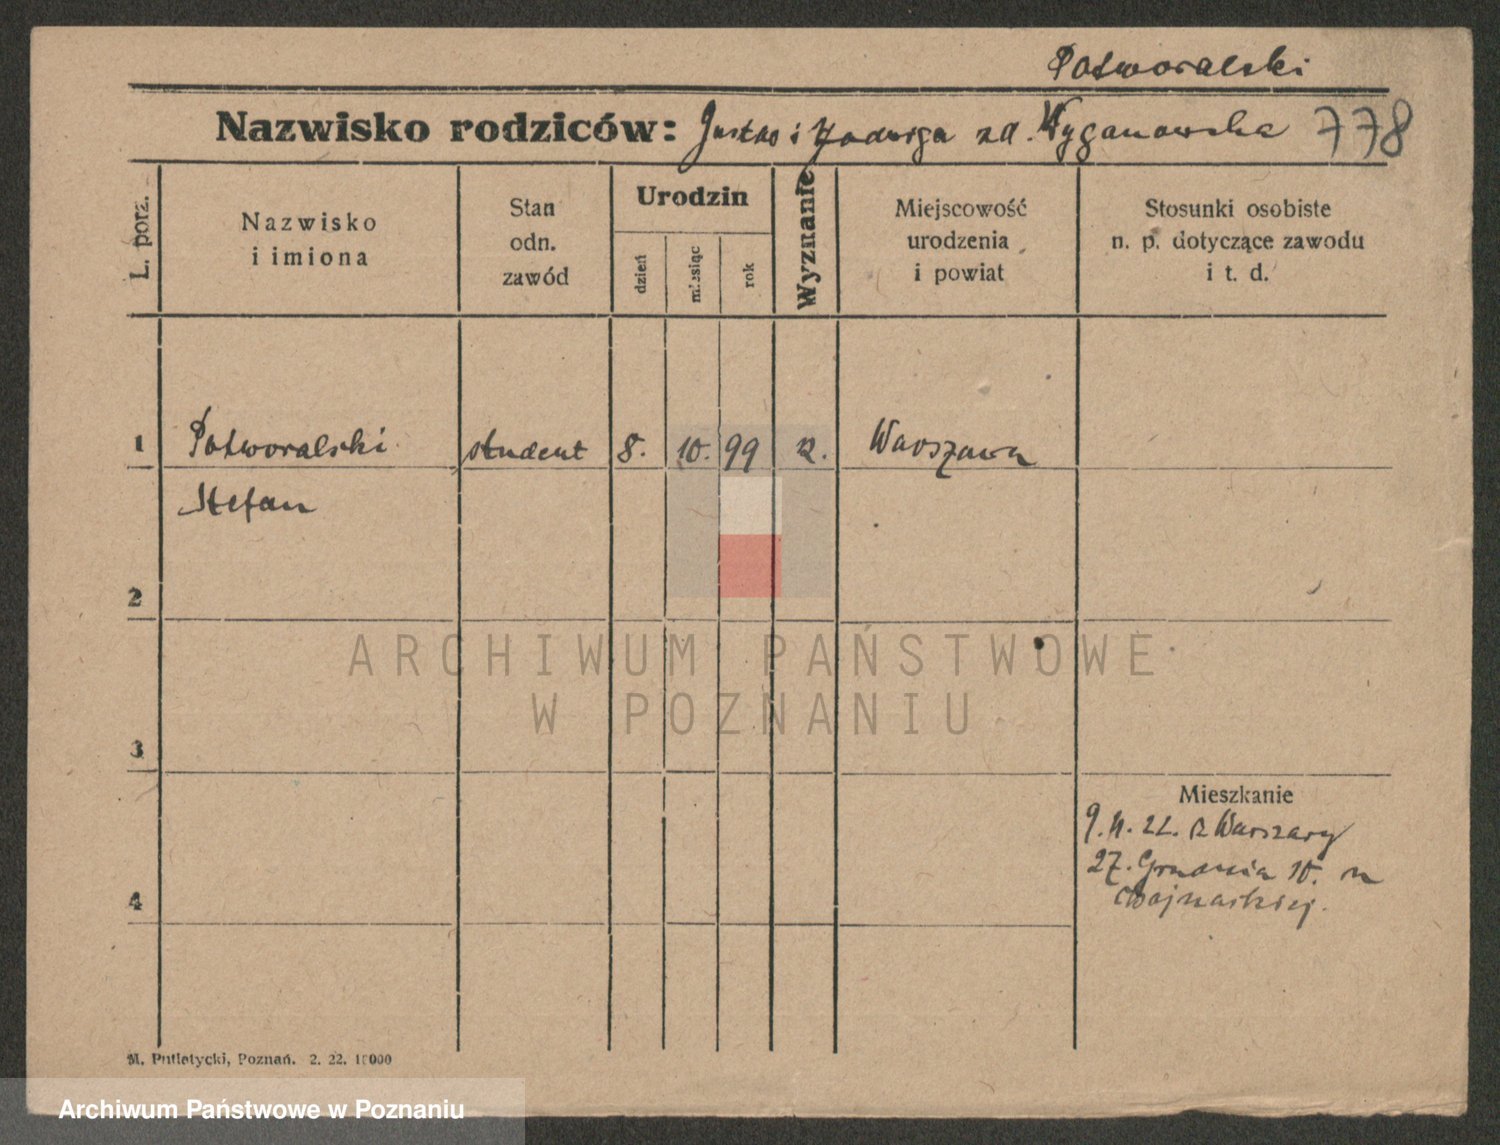 Potworalski
Nazwisko rodziców: i Jadwiga zd. Wyganowska 778
L. porz.
Nazwisko
i imiona
Stan
odn.
zawód
Urodzin
dzień
miesiąc
rok
Wyznanie
Miejscowość
urodzenia
i powiat
Stosunki osobiste
n. p. dotyczące zawodu
i t. d.
1 Potworalski student 8. 10. 99 Warszawa
Stefan
2
ARCHIWUM PAŃSTWOWE
W POZNANIU
3
Mieszkanie
9. 22. Warszawy
27. 10.
4
M. Putiatycki, Poznań. 2. 22. 10000
Archiwum Państwowe w Poznaniu